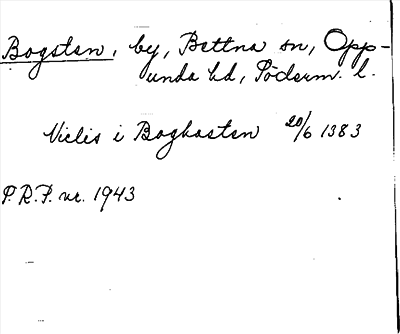 Bogsten, by, Bettna sn, Opp-
unda hd, Söderm. l.
Niclis i Boghasten 20/6 1383
P.R.P. nr. 1943